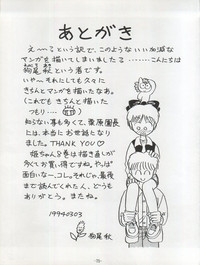 あとがき
え〜るという訳で、このようないい加減な
マンガを描いてしまいました………こんにちは
狗尾 秋 という者です。
いやー、それにしても久々に
きちんとマンガを描いたなあ。
(これでもきちんと描いた
つもり……(笑))
知らない事も多くて、栗原園長
には、本当にお世話になり
ました。THANK YOU♡
姫ちゃん8巻は描き直しが
多くてお買い得ですね。やっぱ
面白いなー、コレ。それじゃ、最後
まで読んでくれた人、どうも
ありがとう。またね。
19940303
狗尾 秋